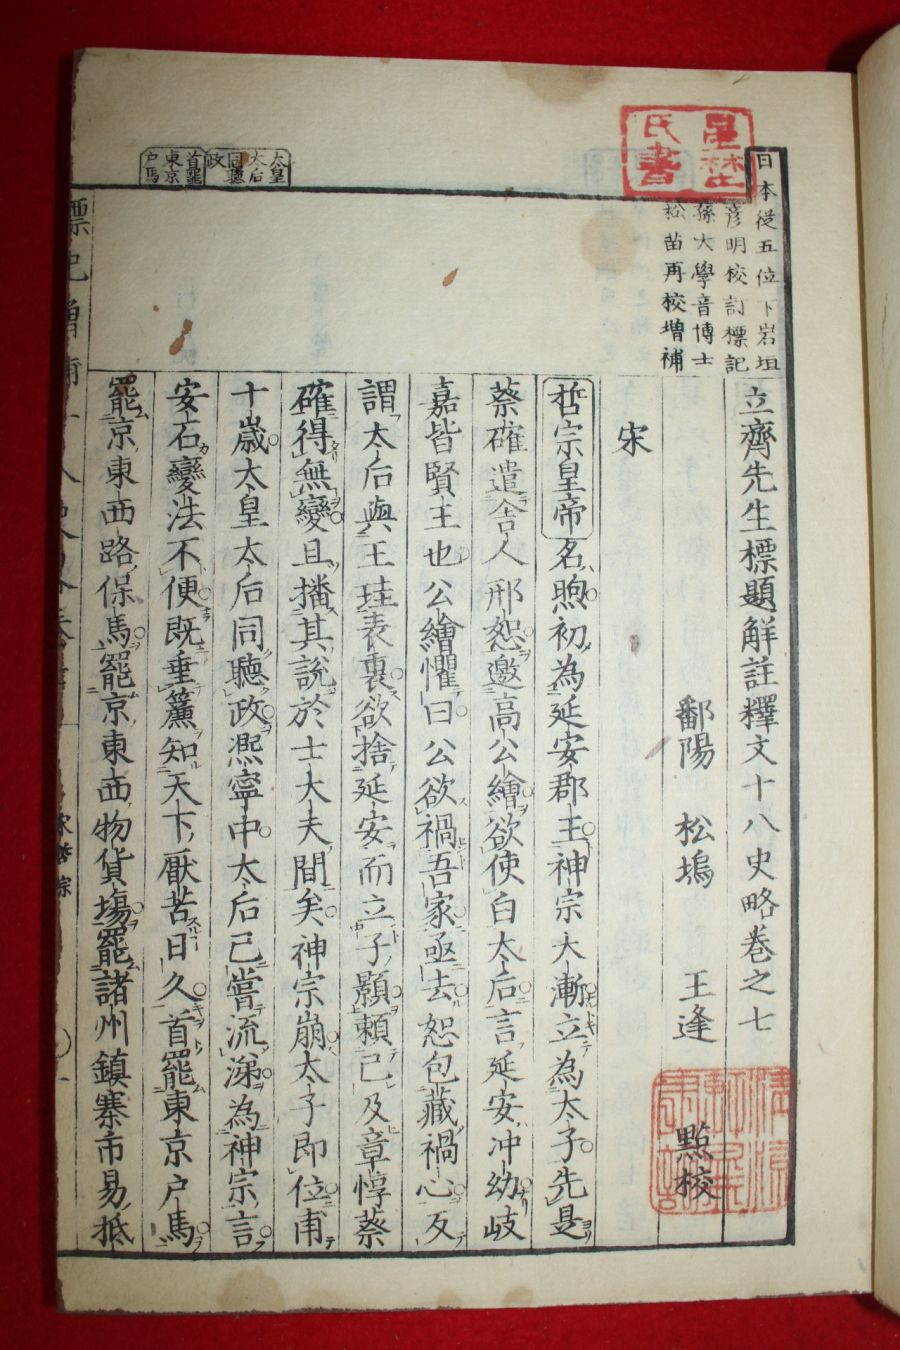 日本從五位下岩垣
彦明校訂標記
孫大學音博士
松苗再校增補
立齊先生標題解註釋文十八史略卷之七
鄱陽 松塢 王逢 點校
宋
哲宗皇帝名煦初為延安郡王神宗大漸立為太子先是
蔡確遣舍人邢恕邀高公繪欲使白太后言延安冲幼岐
嘉皆賢王也公繪懼曰公欲禍吾家亟去恕包藏禍心反
謂太后與王珪表裏欲捨延安而立子顥賴己及章惇蔡
確得無變且播其說於士大夫間矣神宗崩太子即位甫
十歲太皇太后同聽政凞寧中太后已嘗流涕為神宗言
安石變法不便既垂簾知天下厭苦日久首罷東京戶馬
罷京東西路保馬罷京東西物貨場罷諸州鎮寨市易抵
太皇
太后
同聽
政
首罷
東京
戶馬
星林
氏書